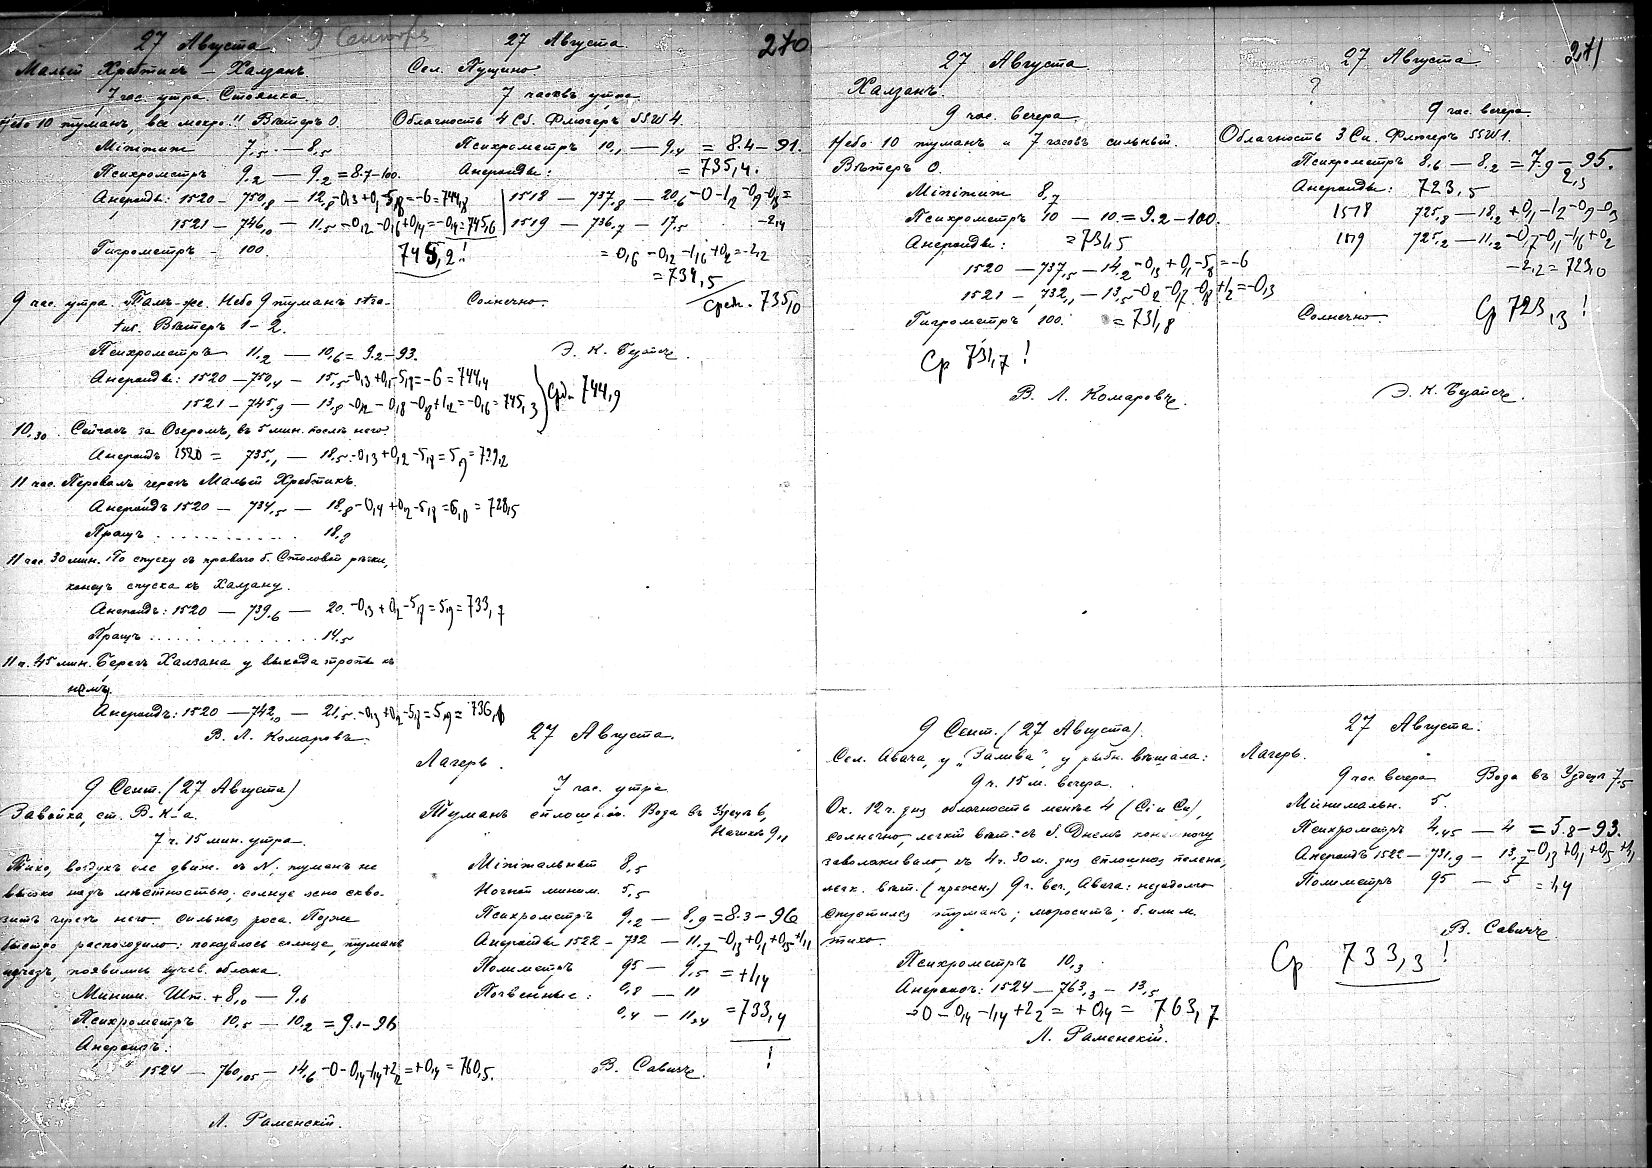 27 Августа 9 Сентября
Малый Хребтикъ – Халзанъ
7 час. утра. Стоянка
Небо 10 туманъ, все мокро!! Вѣтеръ 0.
Minimum 7,5 – 8,5
Психрометръ 9,2 – 9,2 = 8.7–100.
Анероиды: 1520 – 750,8 – 12,8 –0,3 +0,1 –5,8 = –6 = 744,8
1521 – 746,0 – 11,5 –0,2 –0,6 +0,4 = –0,4 = 745,6
Гигрометръ – 100.
745,2!
9 час. утра. Тамъ-же. Небо 9 туманъ stra-
tus. Вѣтеръ 1–2.
Психрометръ 11,2 – 10,6 = 9.2–93.
Анероиды: 1520 – 750,4 – 15,5 –0,3 +0,1 –5,8 = –6 = 744,4
1521 – 745,9 – 13,8 –0,2 –0,8 –0,8 +1,2 = –0,6 = 745,3
Срд. 744,9
10,30. Сейчасъ за Озеромъ, въ 5 мин. послѣ него
Анероидъ 1520 = 735,1 – 18,5 –0,3 +0,2 –5,8 = 5,9 = 729,2
11 час. Перевалъ черезъ Малый Хребтикъ.
Анероидъ 1520 – 734,5 – 18,8 –0,4 +0,2 –5,8 = 6,0 = 728,5
Пращъ . . . . . . . . . . . . 18,2
11 час. 30 мин. По спуску съ праваго б. Столовой рѣчки,
конецъ спуска къ Халзану.
Анероидъ: 1520 – 739,6 – 20. –0,3 +0,2 –5,8 = 5,9 = 733,7
Пращъ . . . . . . . . . . . . 14,5
11 ч. 45 мин. Берегъ Халзана у выхода тропы къ
нему.
Анероидъ: 1520 – 742,0 – 21,5 –0,3 +0,2 –5,8 = 5,9 = 736,1
В. Л. Комаровъ.
27 Августа
270
Сел. Пущино
7 часовъ утра
Облачность 4 CS. Флюгеръ SSW 4.
Психрометръ 10,1 – 9,4 = 8.4 – 91.
Анероиды: = 735,4.
1518 – 737,8 – 20,6 –0 –1,2 –0,9 –0,3 =
1519 – 736,7 – 17,5 –2,4
= 0,6 –0,2 –1,6 +0,2 = –2,2
= 734,5
Солнечно. Средн. 735,0
Э. К. Безайсъ.
9 Сент. (27 Августа)
Завойка, ст. В. К-а.
7 ч. 15 мин. утра.
Тихо, воздухъ еле движ. съ N; туманъ не
высоко надъ мѣстностью; солнце ясно скво-
зитъ черезъ него. Сильная роса. Позже
быстро распогодило: показалось солнце, туманъ
исчезъ, появились кучев. облака.
Миним. Шт. +8,0 – 9,6
Психрометръ 10,5 – 10,2 = 9.1–96
Анероидъ:
1524 – 760,05 – 14,6 –0 –0,4 –1,4 +2,2 = +0,4 = 760,5.
Л. Раменскій.
27 Августа.
Лагерь.
7 час. утра.
Туманъ сплошной. Вода въ 6,
9,11
Minimальный 8,5
Ночной миним. 5,5
Психрометръ 9,2 – 8,9 = 8.3 – 96
Анероиды 1522 – 732 – 11,7 –0,3 +0,1 +0,5 +1,1
Полиметръ 95 – 9,5 = +1,4
Почвенные: 0,8 – 11
0,4 – 11,34 = 733,4
!
В. Савичъ.
27 Августа.
Халзанъ.
9 час. вечера
Небо 10 туманъ и 7 часовъ сильный.
Вѣтеръ 0.
Minimum 8,7
Психрометръ 10 – 10. = 9.2 – 100.
Анероиды: = 731,5
1520 – 737,5 – 14,2 –0,3 +0,1 –5,8 = –6
1521 – 732,1 – 13,5 –0,2 –0,7 –0,8 +1,2 = –0,3
Гигрометръ 100. = 731,8
Ср 731,7!
В. Л. Комаровъ.
27 Августа
271
?
9 час. вечера
Облачность 3 Cu. Флюгеръ SSW 1.
Психрометръ 8,6 – 8,2 = 7.9 – 95.
Анероиды: 723,5 2,3
1518 725,8 – 18,2 +0,1 –1,2 –0,9 –0,3
1519 725,2 – 11,2 –0,7 –0,1 –1,6 +0,2
–2,2 = 723,0
Солнечно. Ср 723,3!
Э. К. Безайсъ.
9 Сент. (27 Августа).
Сел. Авача, у „Залива", у рыбн. вѣшала:
9 ч. 15 м. вечера.
Ок. 12 ч. дня облачность менѣе 4 (Ci и Cu),
солнечно, легкій вѣт. съ S. Днемъ понемногу
заволакивало, къ 4 ч. 30 м. дня сплошная пелена,
легк. вѣт. (прежн.) 9 ч. веч., Авача: незадолго
спустился туманъ; моросить; б. или м.
тихо.
Психрометръ 10,3
Анероидъ: 1524 – 763,3 – 13,5
–0 –0,4 –1,4 +2,2 = +0,4 = 763,7
Л. Раменскій.
27 Августа.
Лагерь.
9 час вечера Вода въ 7,5
Минимальн. 5.
Психрометръ 4,45 – 4 = 5.8 – 93.
Анероидъ 1522 – 731,9 – 13,7 –0,3 +0,1 +0,5 +1,1
Полиметръ 95 – 5 = 1,4
В. Савичъ.
Ср 733,3!